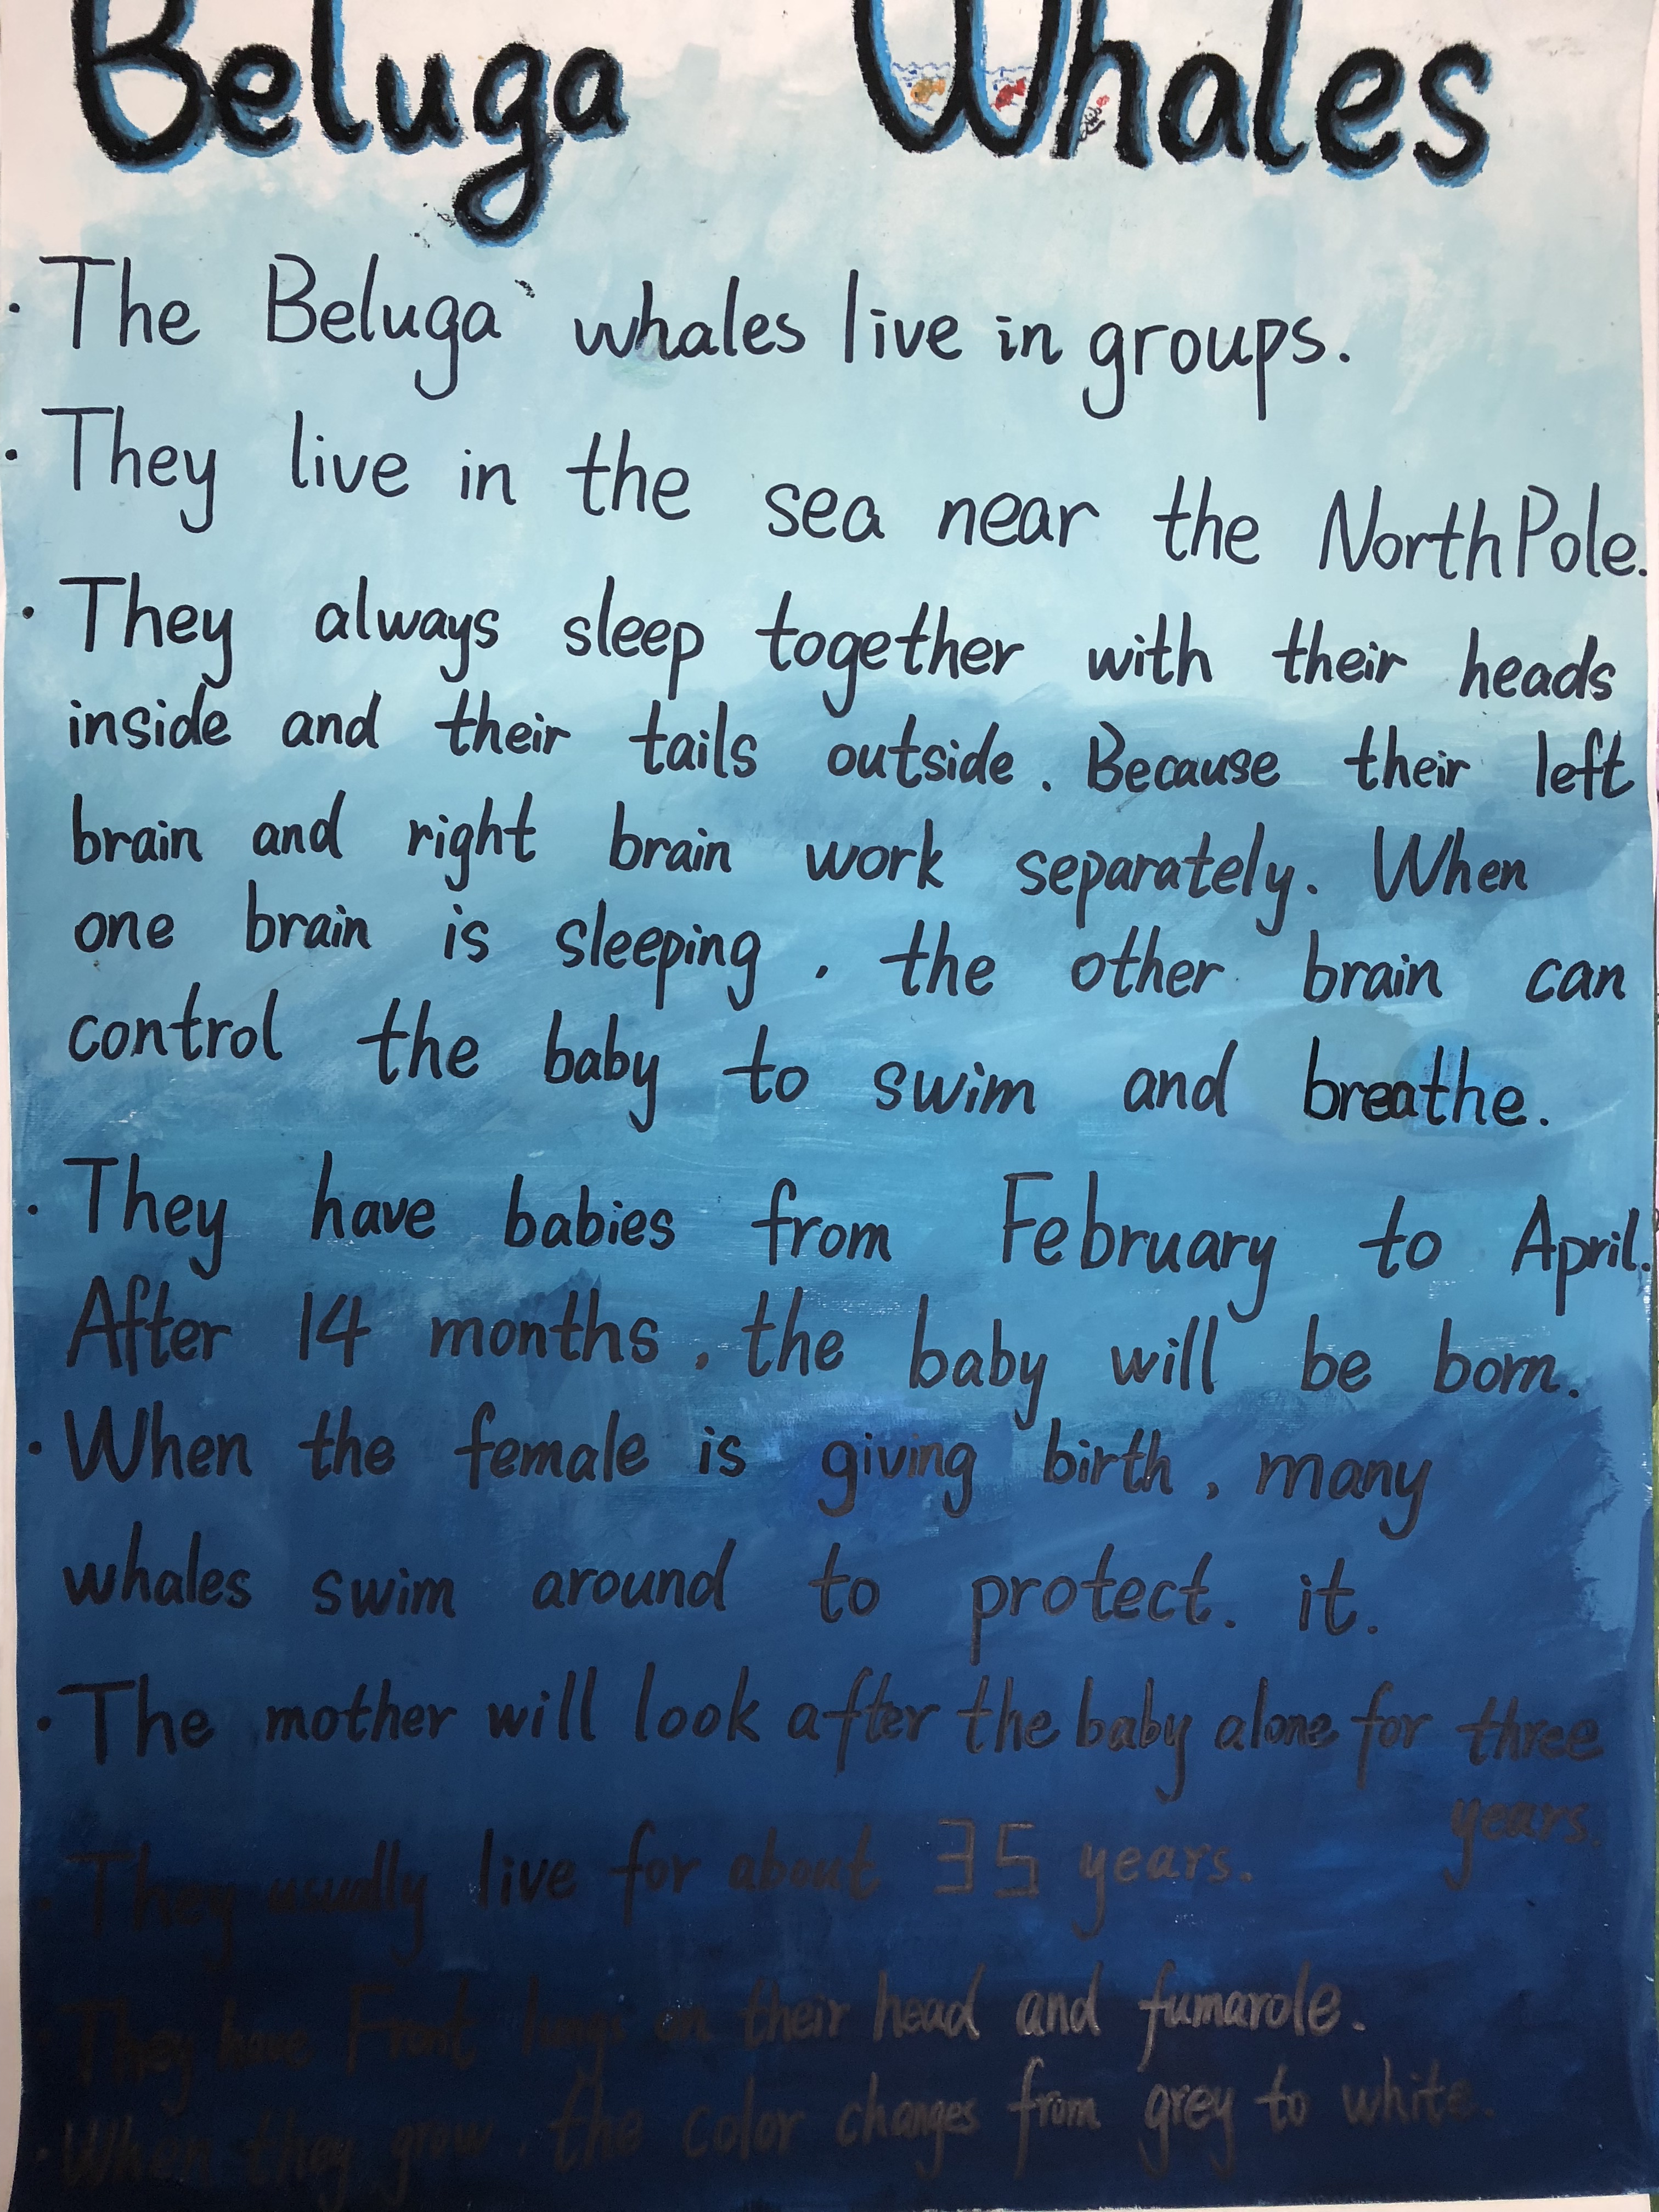 Beluga Whales
· The Beluga whales live in groups.
· They live in the sea near the North Pole.
· They always sleep together with their heads
inside and their tails outside. Because their left
brain and right brain work separately. When
one brain is sleeping, the other brain can
control the baby to swim and breathe.
· They have babies from February to April.
After 14 months, the baby will be born.
· When the female is giving birth, many
whales swim around to protect. it.
· The mother will look after the baby alone for three
years.
· They usually live for about 35 years.
· They have Front lungs on their head and fumarole.
· When they grow, the color changes from grey to white.